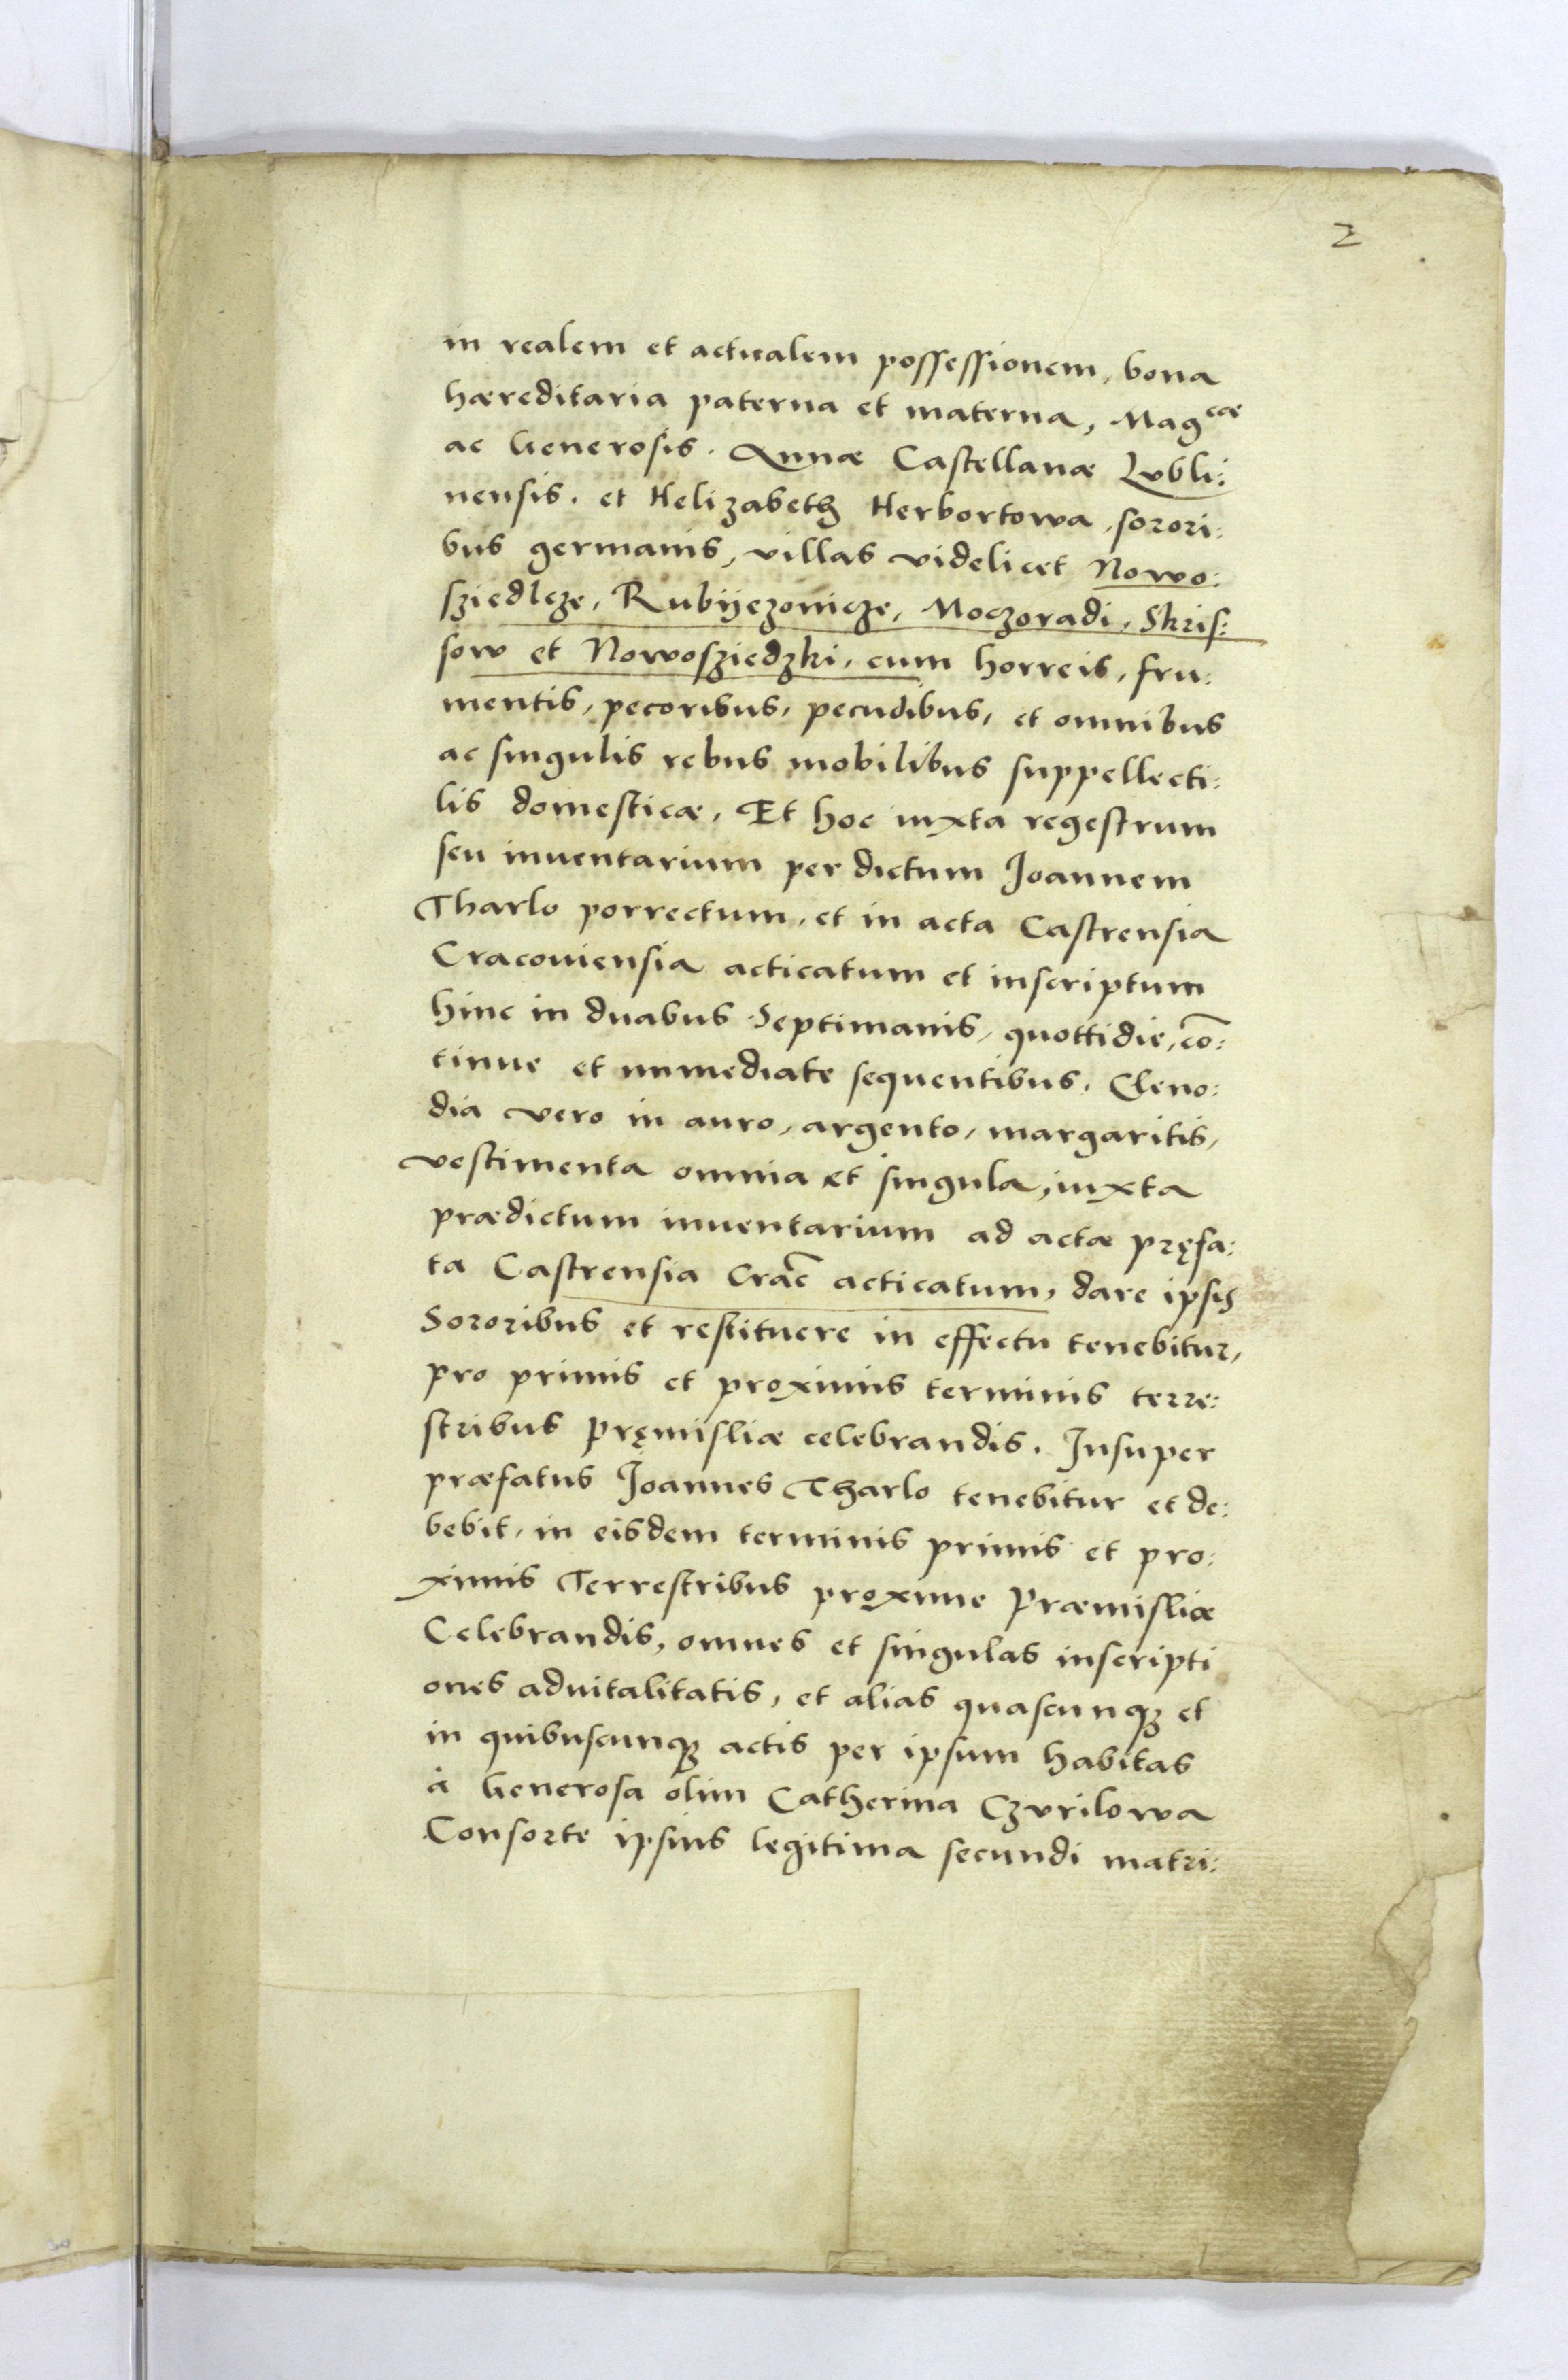 2
in realem et actualem possessionem, bona
hæreditaria paterna et materna, Mag<sup>cæ</sup>
ac Generosis. Annæ Castellanæ Lubli:
nensis. et Helizabeth Herbortowa, sorori:
bus germanis, villas videlicet Nowo:
sziedlcze, Rubijezonicze, Moczoradi, Skris:
sow et Nowosziedzki, cum horreis, fru:
mentis, pecoribus, pecudibus, et omnibus
ac singulis rebus mobilibus suppellecti:
lis domesticæ, Et hoc iuxta regestrum
seu inuentarium per dictum Joannem
Tharlo porrectum, et in acta Castrensia
Cracouiensia acticatum et inscriptum
hinc in duabus Septimanis, quottidie, cō:
tinue et immediate sequentibus. Cleno:
dia vero in auro, argento, margaritis,
vestimenta omnia et singula, iuxta
prædictum inuentarium ad acta pręfa:
ta Castrensia Crac̄ acticatum, dare ipsis
Sororibus et restituere in effectu tenebitur,
pro primis et proximis terminis terre:
stribus Pręmisliæ celebrandis. Insuper
præfatus Joannes Tharlo tenebitur et de:
bebit, in eisdem terminis primis et pro:
ximis Terrestribus proxime Præmisliæ
Celebrandis, omnes et singulas inscripti
ones aduitalitatis, et alias quascunq₃ et
in quibuscunq₃ actis per ipsum habitas
à Generosa olim Catherina Czurilowa
Consorte ipsius legitima secundi matri: